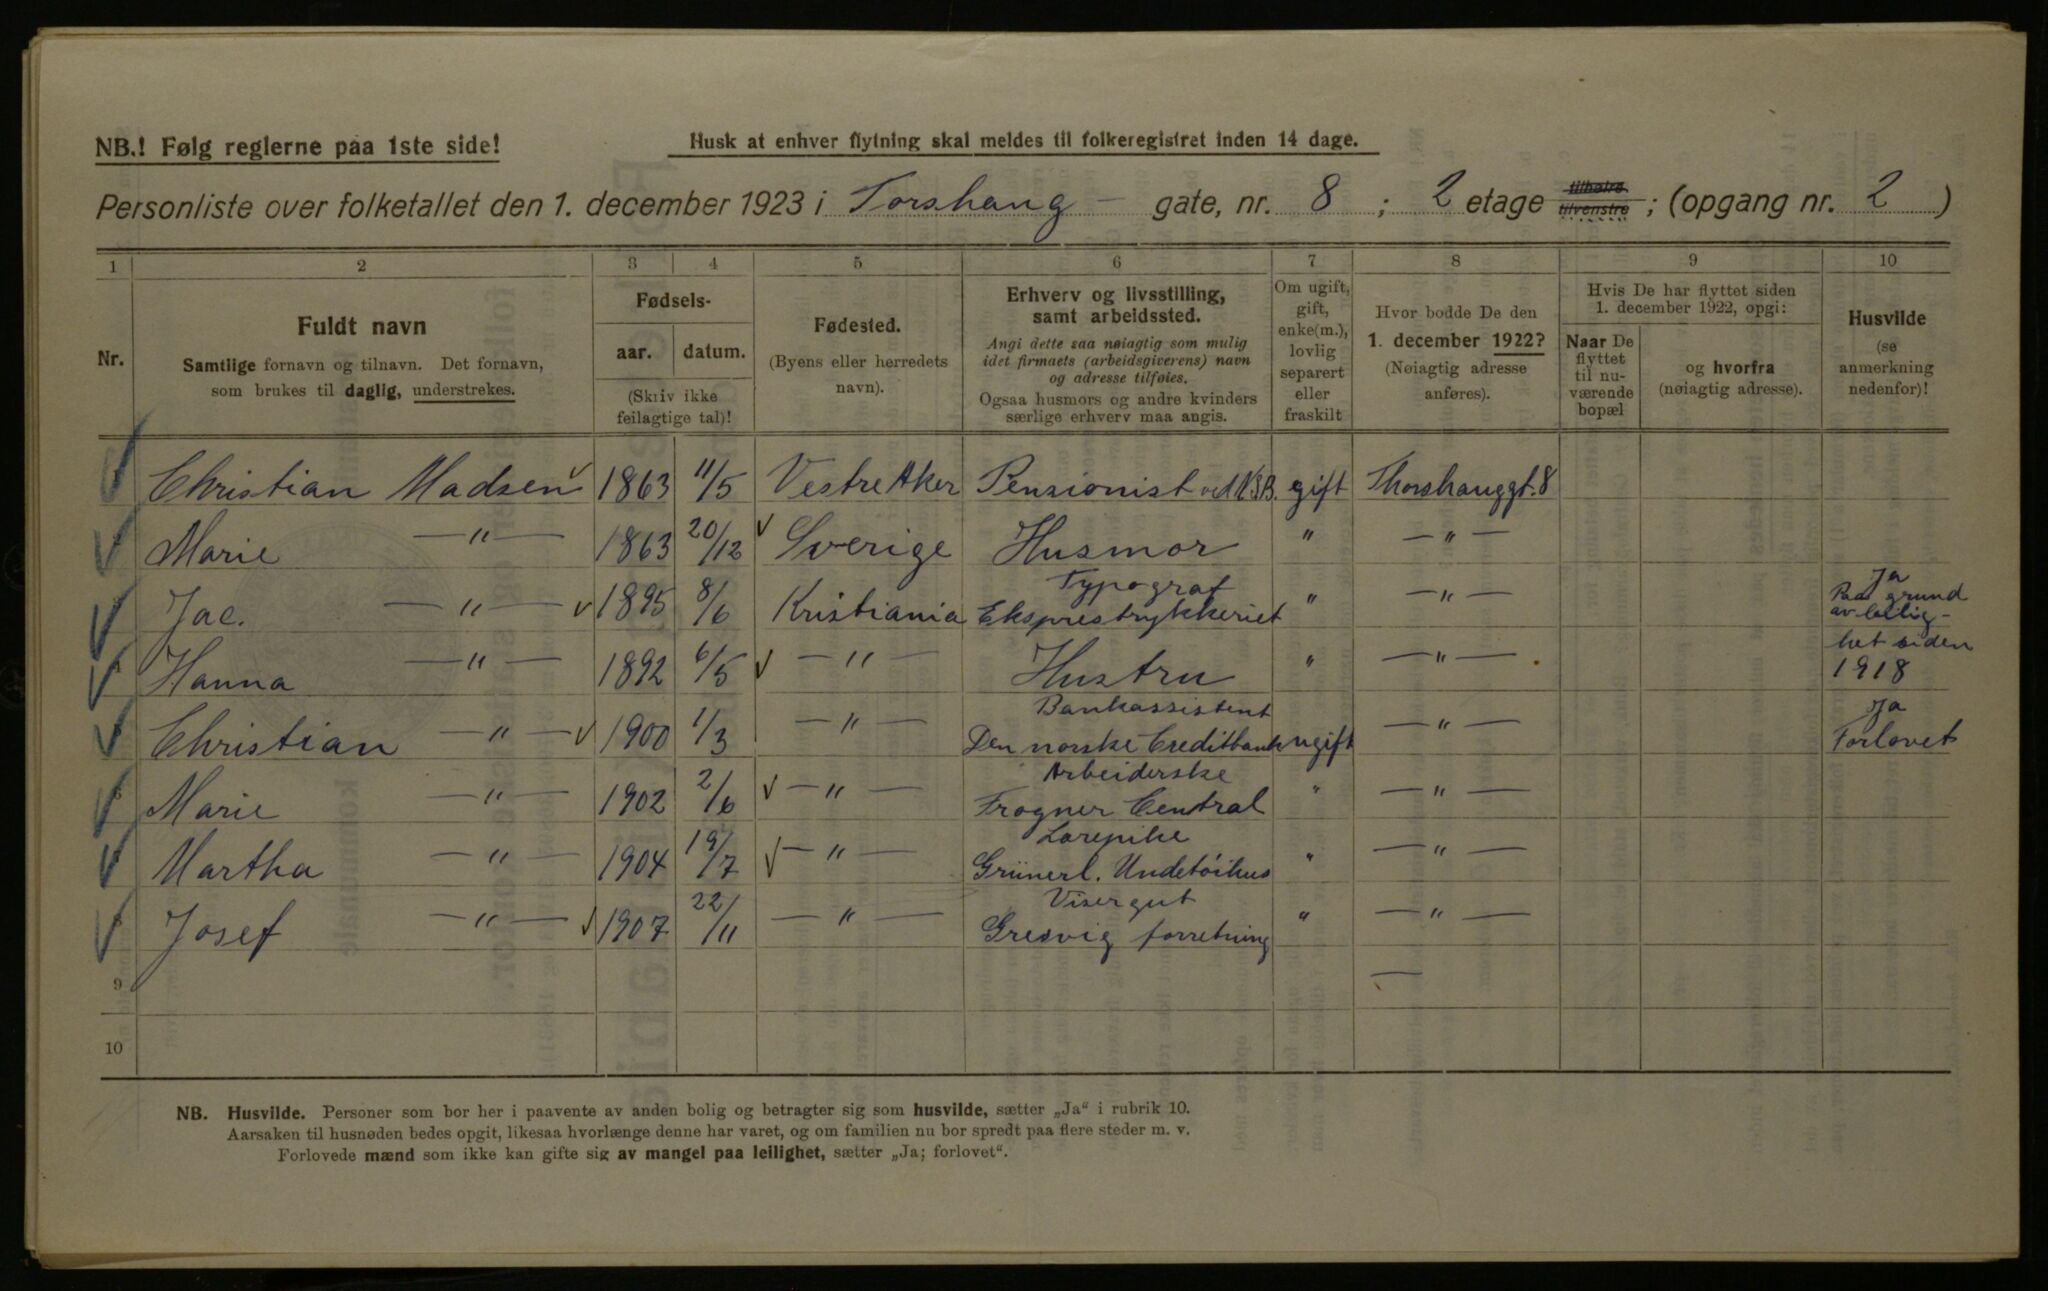 NB.! Følg reglerne paa 1ste side!
Husk at enhver flytning skal meldes til folkeregistret inden 14 dage.
Personliste over folketallet den 1. december 1923 i Torshaug - gate, nr. 8 ; 2 etage tilhøire tilvenstre ; (opgang nr. 2 )
1 2 3 4 5 6 7 8 9 10
Nr.
Fuldt navn
Samtlige fornavn og tilnavn. Det fornavn,
som brukes til daglig, understrekes.
Fødsels-
aar. datum.
(Skriv ikke
feilagtige tal)!
Fødested.
(Byens eller herredets
navn).
Erhverv og livsstilling,
samt arbeidssted.
Angi dette saa nøiagtig som mulig
idet firmaets (arbeidsgiverens) navn
og adresse tilføies.
Ogsaa husmors og andre kvinders
særlige erhverv maa angis.
Om ugift,
gift,
enke(m.),
lovlig
separert
eller
fraskilt
Hvor bodde De den
1. december 1922?
(Nøiagtig adresse
anføres).
Hvis De har flyttet siden
1. december 1922, opgi:
Naar De
flyttet
til nu-
værende
bopæl
og hvorfra
(nøiagtig adresse).
Husvilde
(se
anmerkning
nedenfor)!
Christian Madsen 1863 11/5 Vestre Aker Pensionist ved N.S.B. gift Thorshauggt. 8
Marie —"— 1863 20/12 Sverige Husmor " —"—
Jac. —"— 1895 8/6 Kristiania Typograf Eksprestrykkeriet " —"— Ja Paa grund av leilig-
Hanna —"— 1892 6/5 —"— Hustru " —"— het siden 1918
Christian —"— 1900 1/3 —"— Bankassistent Den norske Creditbank ugift —"— Ja Forlovet
Marie —"— 1902 2/6 —"— Arbeiderske Frogner Central " —"—
Martha —"— 1904 19/7 —"— Lærepike Grünerl. Undetøihus " —"—
Josef —"— 1907 22/11 —"— Visergut Gresvig forretning " —"—
9 —
10
NB. Husvilde. Personer som bor her i paavente av anden bolig og betragter sig som husvilde, sætter „Ja" i rubrik 10.
Aarsaken til husnøden bedes opgit, likesaa hvorlænge denne har varet, og om familien nu bor spredt paa flere steder m. v.
Forlovede mænd som ikke kan gifte sig av mangel paa leilighet, sætter „Ja; forlovet".